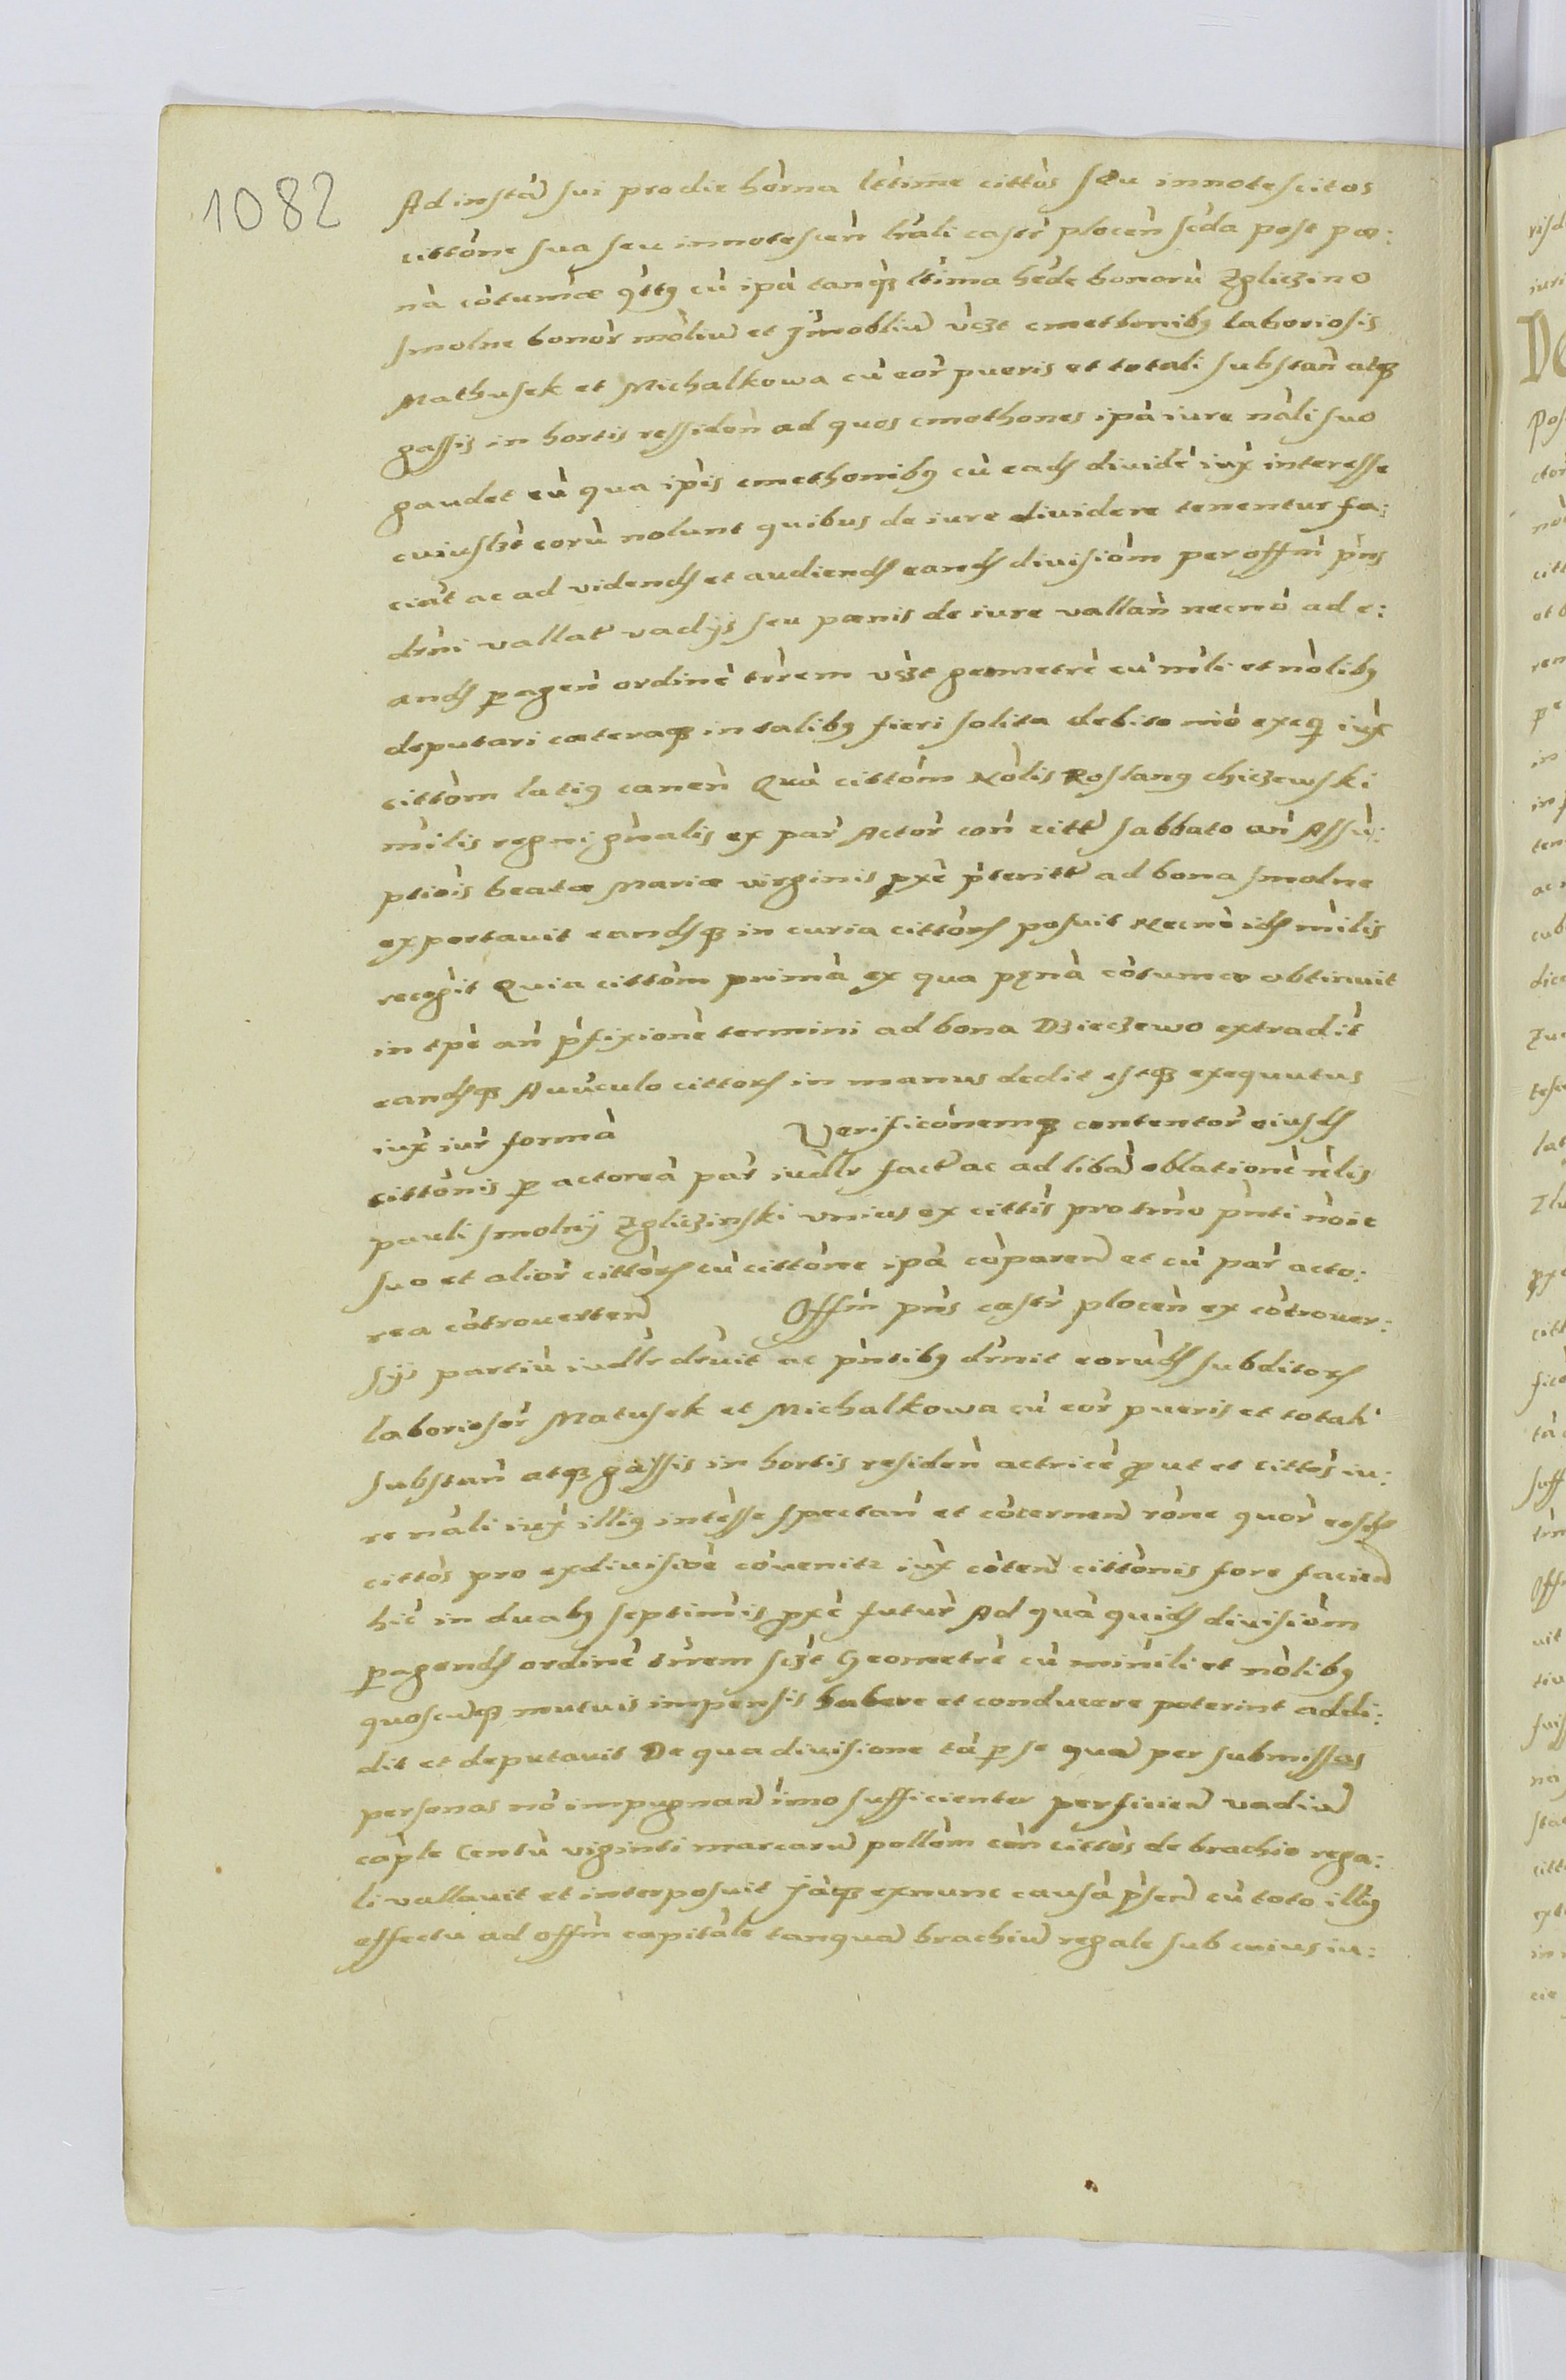 1082
Ad instã sui pro die horna lttime cittos seu innotescitos
cittone sua seu innotescen lrali castr plocen scda post pœ:
na cotumæ qttq cu ipa tanqz lttima hede bonoru Zgliczino
smolne bonor moliu et Jmobliu vczt cmethonibq laboriosis
Mathusek et Michalkowa cu eor pueris et totali substan atqz
gassis in hortis ressiden ad quos cmethones ipa iure nali suo
gaudet cu qua ipis cmethonibq cu eads divide iux interesse
cuiuslzt eoru nolunt quibus de iure dividere tenentur fa:
ciat ac ad vidends et audiends eands divisiom per offm pns
drni vallatr vadijs seu pœnis de iure vallan necno ad e:
ands pagen ordine trrem vczt geometre cu mli et nolibq
deputari cæteraqz in talibq fieri solita debito mo exeq iux
cittom latiq canen Qua cittom Nolis Roslanq chiczewski
milis regni gnalis ex par Actor con citt sabbato an Assu:
ptiois beatæ Mariæ virginis pxe pteritt ad bona smolne
exportavit eandsqz in curia cittors posuit Necno ids milis
recogit Quia cittom prima ex qua pęna cotumæ obtinuit
in tpe an pfixione termini ad bona Dzieczewo extradit
eandsqz Avuculo cittors in manus dedit estqz exequutus
iux iur forma Verificonemqz contentor eiusds
cittonis p actorea par iudlr fact ac ad liba oblatione nlis
pauli smolny Zgliczinski unius ex cittis pro trno pnti noie
suo et alior cittors cu cittone ipa coparen et cu par acto:
rea cotroverten Offm pns castr plocen ex cotrover:
sijs partiu iudlr druit ac pntibq drnit eoruds subditors
laboriosor Matusek et Michalkowa cu eor pueris et totali
substan atqz gassis in hortis residen actrice put et cittos iu:
re nali iux illiq intesse spectan et cocernen rone quor eosds
cittos pro exdivisioe covenit iux coten cittonis fore facien
hic in duabq septimis pxe futur Ad qua quids divisiom
pagends ordine trrem sczt Geometre cu minili et nolibq
quoscuqz mutuis impensis habere et conducere poterint addi:
dit et deputavit De qua divisione ta p se qua per submissas
personas no impugnan imo sufficienter perficien vadiu
caple Centu viginti marcaru pollom con cittos de brachio rega:
li vallavit et interposuit Jaqz exnunc causa psen cu toto illiq
effectu ad offm capitale tanqua brachiu regale sub cuius iu: